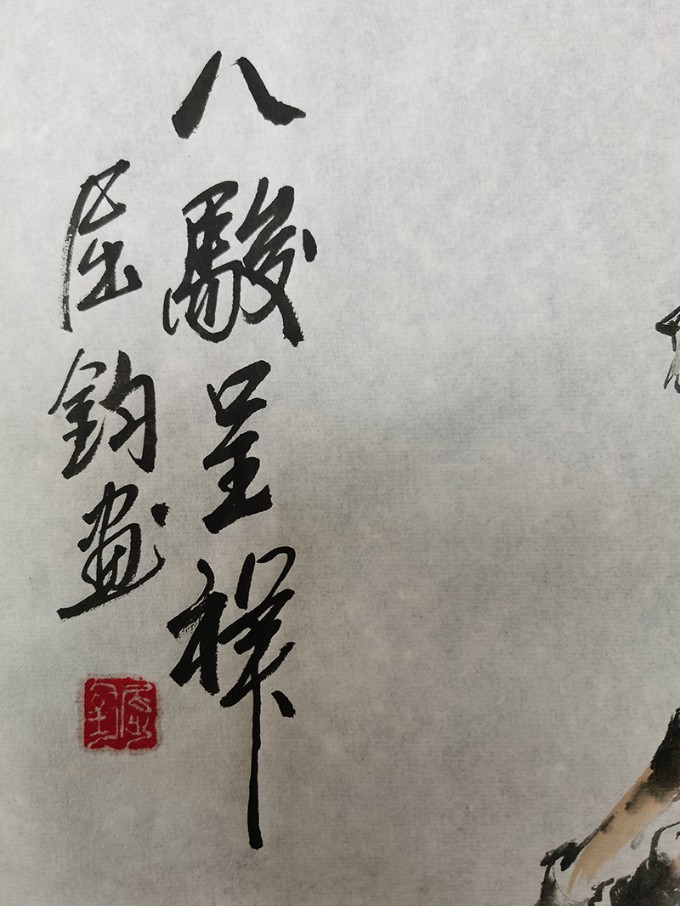 八駿呈祥
屈鈞畫